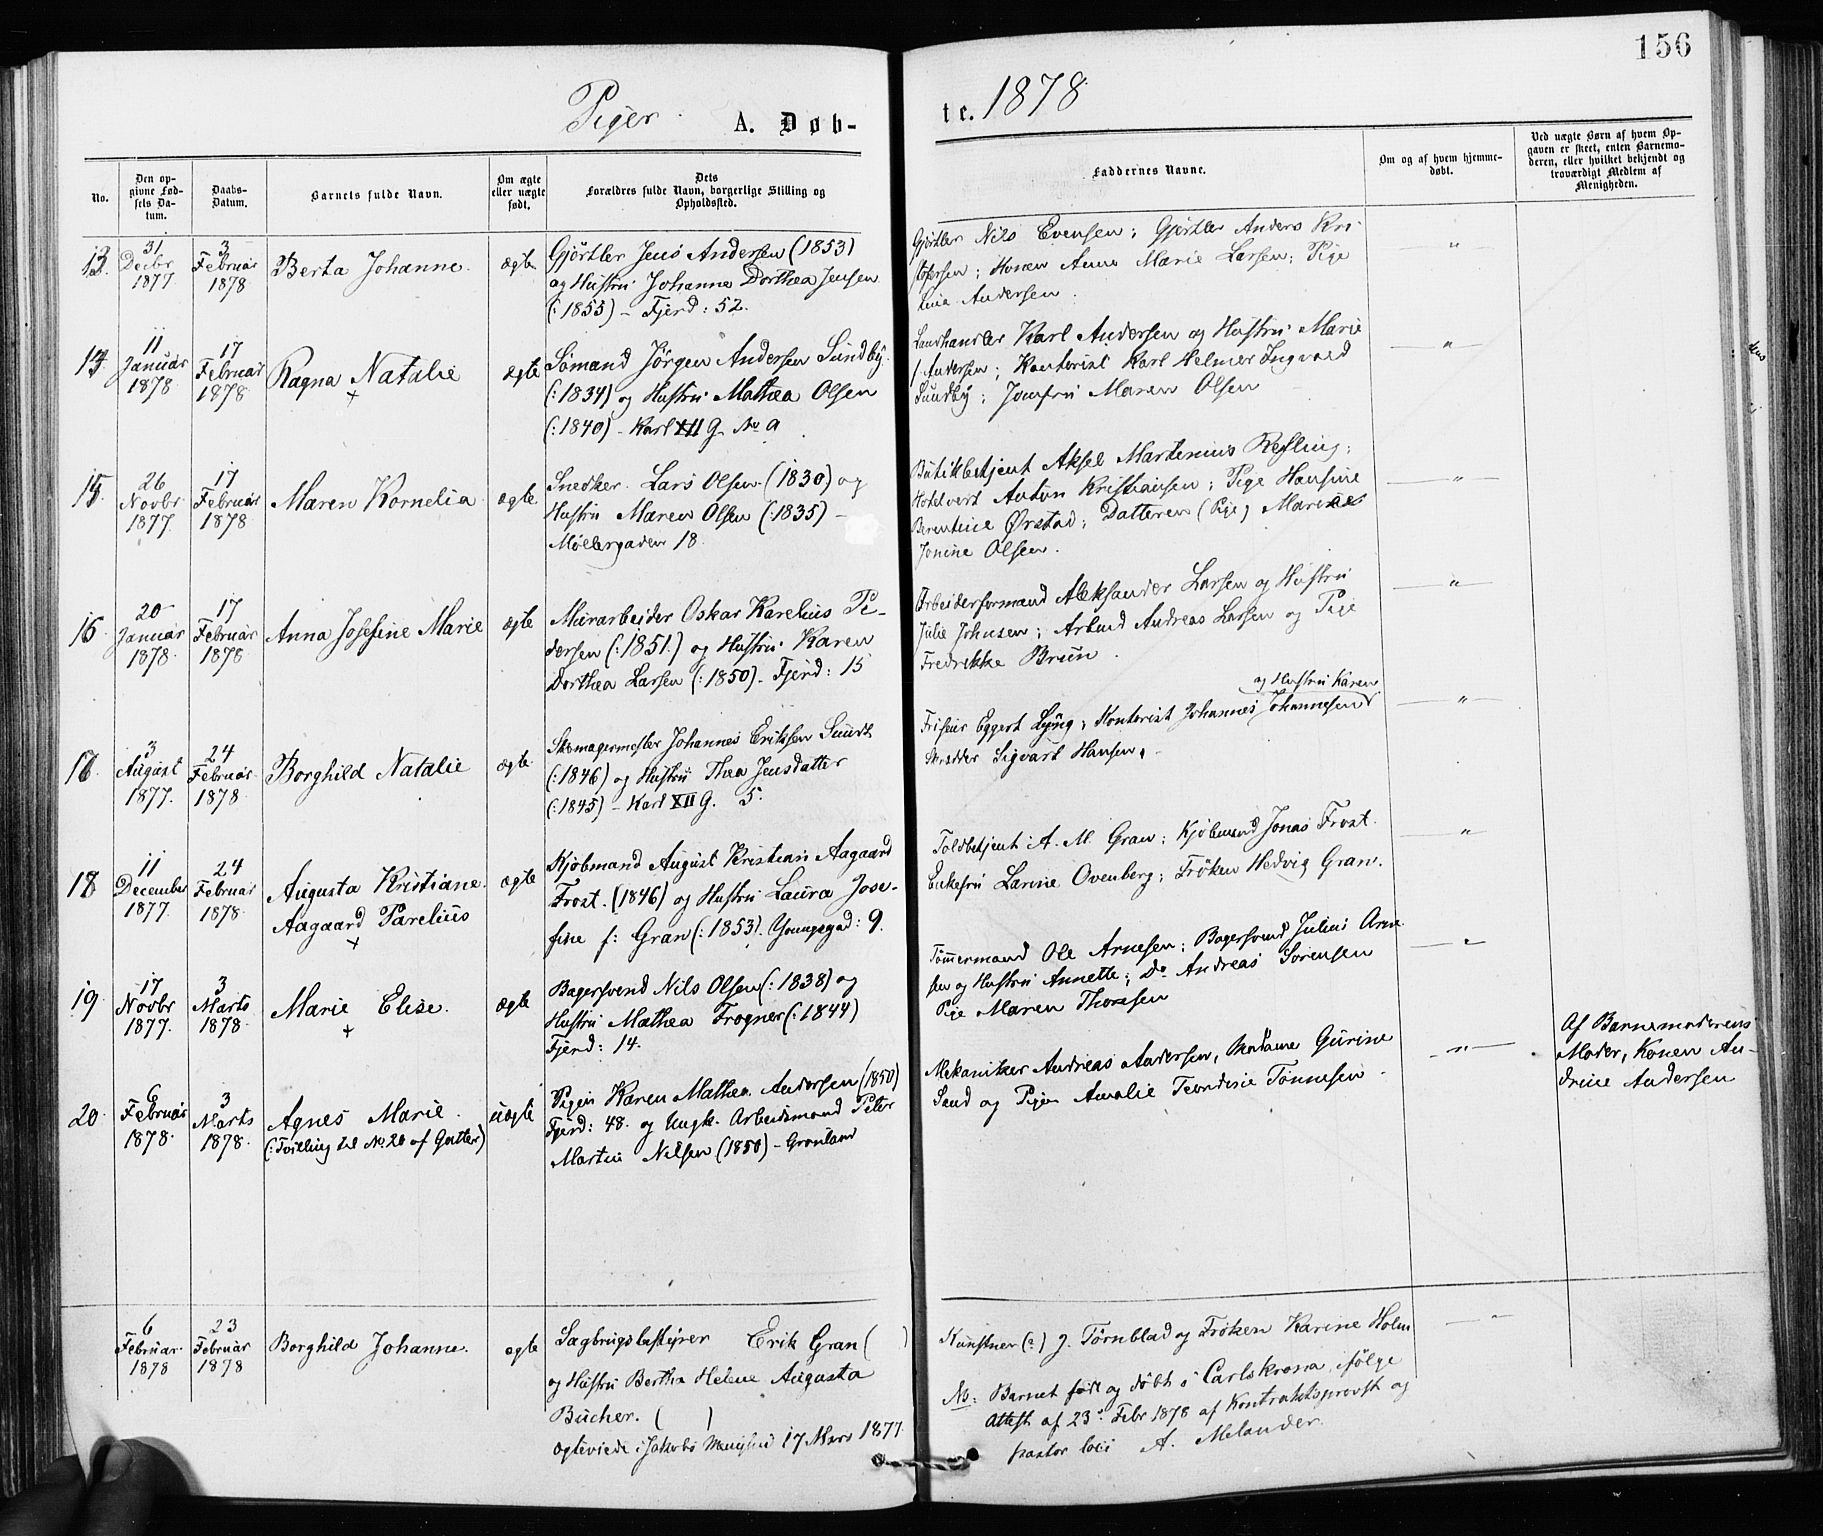 156
Piger. A. Døb-
te. 1878
No.
Den opgivne Fødsels Datum.
Daabs-Datum.
Barnets fulde Navn.
Om ægte eller uægte født.
Dets Forældres fulde Navn, borgerlige Stilling og Opholdssted.
Faddernes Navne.
Om og af hvem hjemmedøbt.
Ved uægte Børn af hvem Opgaven er skeet, enten Barnemoderen, eller hvilket bekjendt og troværdigt Medlem af Menigheden.
13.
31 Decbr 1877
3 Februar 1878
Berta Johanne.
ægte
Gjørtler Jens Andersen (1853)
og Hustru Johanne Dorthea Jensen
(:1855) – Fjerd: 52.
Gjørtler Nils Evensen; Gjørtler Anders Kri
stofersen; Konen Anne Marie Larsen; Pige
Lina Andersen.
"
14
11 Januar 1878
17 Februar 1878
Ragna Natalie
+
ægte
Sømand Jörgen Andersen Sundby.
(:1834) og Hustru Mathea Olsen
(:1840) – Karl XII G. No 9
Landhandler Karl Andersen og Hustru Marie
f. Andersen; Kontorist Karl Helmer Ingvald
Sundby; Jomfru Maren Olsen
"
15
26 Novbr 1877
17 Februar 1878
Maren Kornelia
ægte
Snedker Lars Olsen (1830) og
Hustru Maren Olsen (:1835) –
Møllergaden 18.
Butikbetjent Aksel Martenius Refling;
Hotelvert Anton Kristiansen; Pige Hansine
Berentine Ørstad; Datteren (Pige) Marie
Jonine Olsen.
"
16
20 Januar 1878
17 Februar 1878
Anna Josefine Marie
ægte
Murarbeider Oskar Karelius Pe-
dersen (:1851.) og Hustru Karen
Dorthea Larsen (:1850) – Fjerd: 15
Arbeidsformand Aleksander Larsen og Hustru
Julie Johnsen; Arbmd Andreas Larsen og Pige
Fredrikke Brun.
"
17
3 August 1877.
24 Februar 1878
Borghild Natalie
ægte
Skomagermester Johannes Eriksen Suurt
(:1846) og Hustru Thea Jensdatter
(:1845) – Karl XII G. 5.
og Hustru Karen
Friseur Eggert Lyng; Kontorist Johannes Johannesen
Skrædder Sigvart Hansen.
"
18
11 December 1877.
24 Februar 1878.
Augusta Kristiane
Aagaard Parelius
+
ægte
Kjøbmand August Kristian Aagaard
Frost. (1846) og Hustru Laura Jose-
fine f: Gran (:1853). Youngsgad: 9.
Toldbetjent A. M. Gran; Kjøbmand Jonas Frost.
Enkefru Larine Ovenberg; Frøken Hedvig Gran.
"
19
17 Novbr 1877.
3 Marts 1878
Marie Elise.
+
ægte
Bagersvend Nils Olsen (:1838) og
Hustru Mathea Frogner (:1844)
Fjerd: 14.
Tømmermand Ole Arnesen; Bagersvend Julius Arne
sen og Hustru Annette; Do Andreas Sorensen
Pige Maren Thoresen
"
20
6 Februar 1878.
3 Marts 1878.
Agnes Marie.
(:Tvilling til No. 20 af Gutter)
uægte
Pigen Karen Mathea Andersen (1850)
Fjerd: 48. og Ungk. Arbeidsmand Peter
Martin Nilsen (1850) – Grønland
Mekaniker Andreas Andersen, Madame Gurine
Sand og Pigen Amalie Teondine Tønnesen.
"
Af Barnemoderens
Moder, Konen An-
drine Andersen
6 Februar 1878
23 Februar 1878
Borghild Johanne.
ægte
Sagbrugsbestyrer Erik Gran ( )
og Hustru Bertha Helene Augusta
Bücher. ( )
ægteviede i Jakobs Menighed 17 Mars 1877.
Kunstner (?) J. Törnblad og Frøken Karine Holm
"
Nb: Barnet født og døbt i Carlskrona ifølge
Attest af 23. Febr 1878 af Kontraktsprovst og
pastor loci A. Melander.